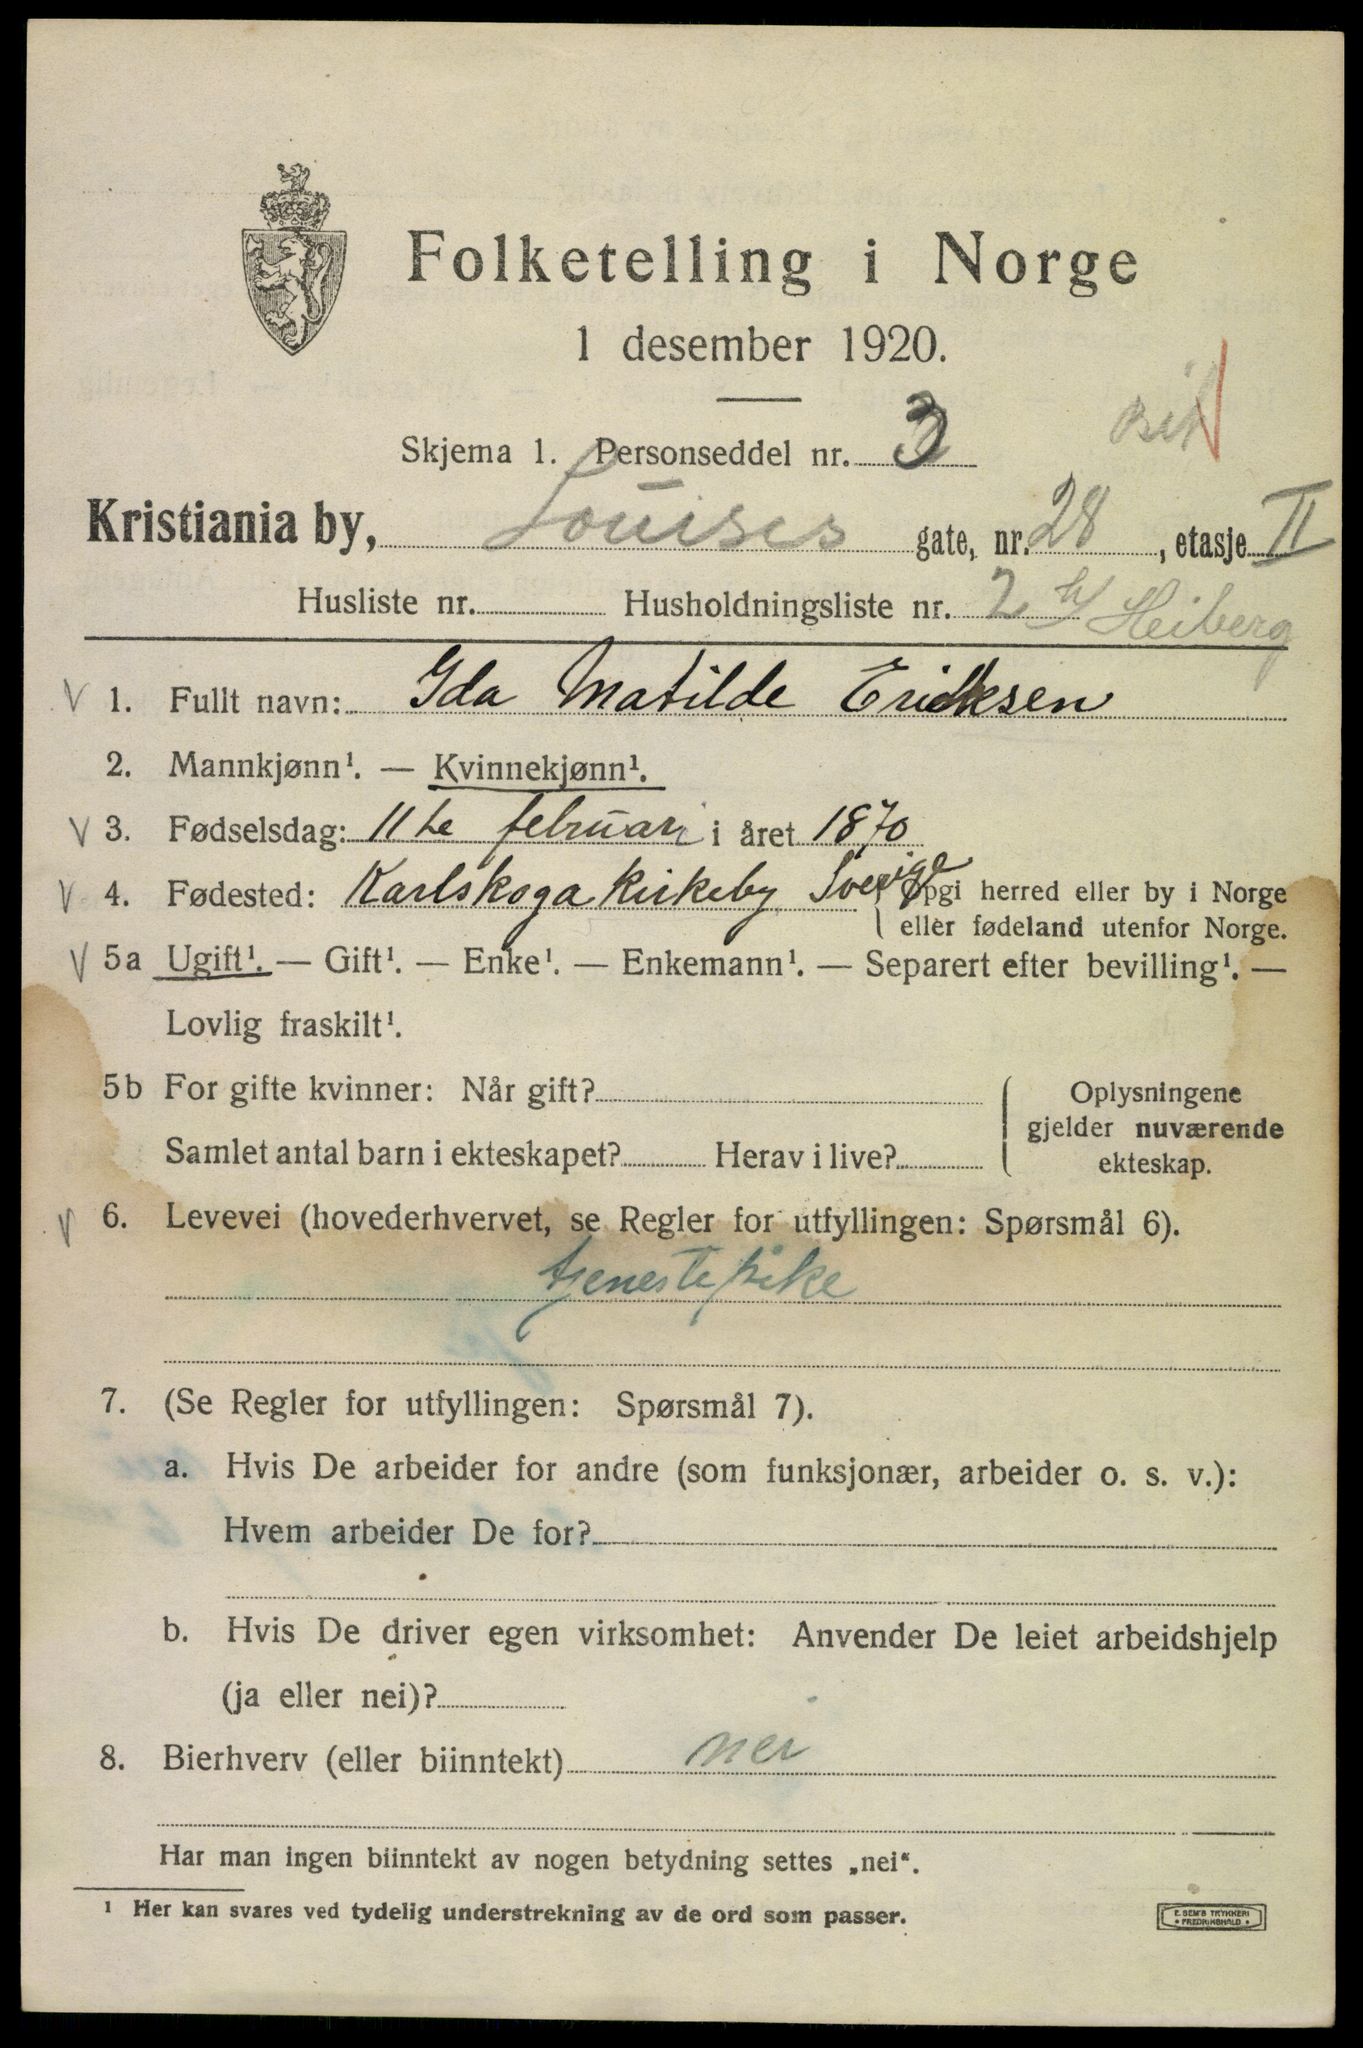 Folketelling i Norge
1 desember 1920.
Skjema 1. Personseddel nr. 3
Kristiania by, Louises gate, nr. 28, etasje II
Husliste nr. Husholdningsliste nr. 2 h/ Heiberg
V 1. Fullt navn: Ida Matilde Ericksen
2. Mannkjønn¹. — Kvinnekjønn¹.
V 3. Fødselsdag: 11te februar i året 1870
V 4. Fødested: Karlskoga kirkeby Sverige { Opgi herred eller by i Norge
eller fødeland utenfor Norge.
V 5a Ugift¹. — Gift¹. — Enke¹. — Enkemann¹. — Separert efter bevilling¹. —
Lovlig fraskilt¹.
5b For gifte kvinner: Når gift?
Samlet antal barn i ekteskapet? Herav i live?
Oplysningene
gjelder nuværende
ekteskap.
V 6. Levevei (hovederhvervet, se Regler for utfyllingen: Spørsmål 6).
tjenestepike
7. (Se Regler for utfyllingen: Spørsmål 7).
a. Hvis De arbeider for andre (som funksjonær, arbeider o. s. v.):
Hvem arbeider De for?
b. Hvis De driver egen virksomhet: Anvender De leiet arbeidshjelp
(ja eller nei)?
8. Bierhverv (eller biinntekt) nei
Har man ingen biinntekt av nogen betydning settes „nei“.
¹ Her kan svares ved tydelig understrekning av de ord som passer.
E. SEM'S TRYKKERI
• FREDRIKSHALD •